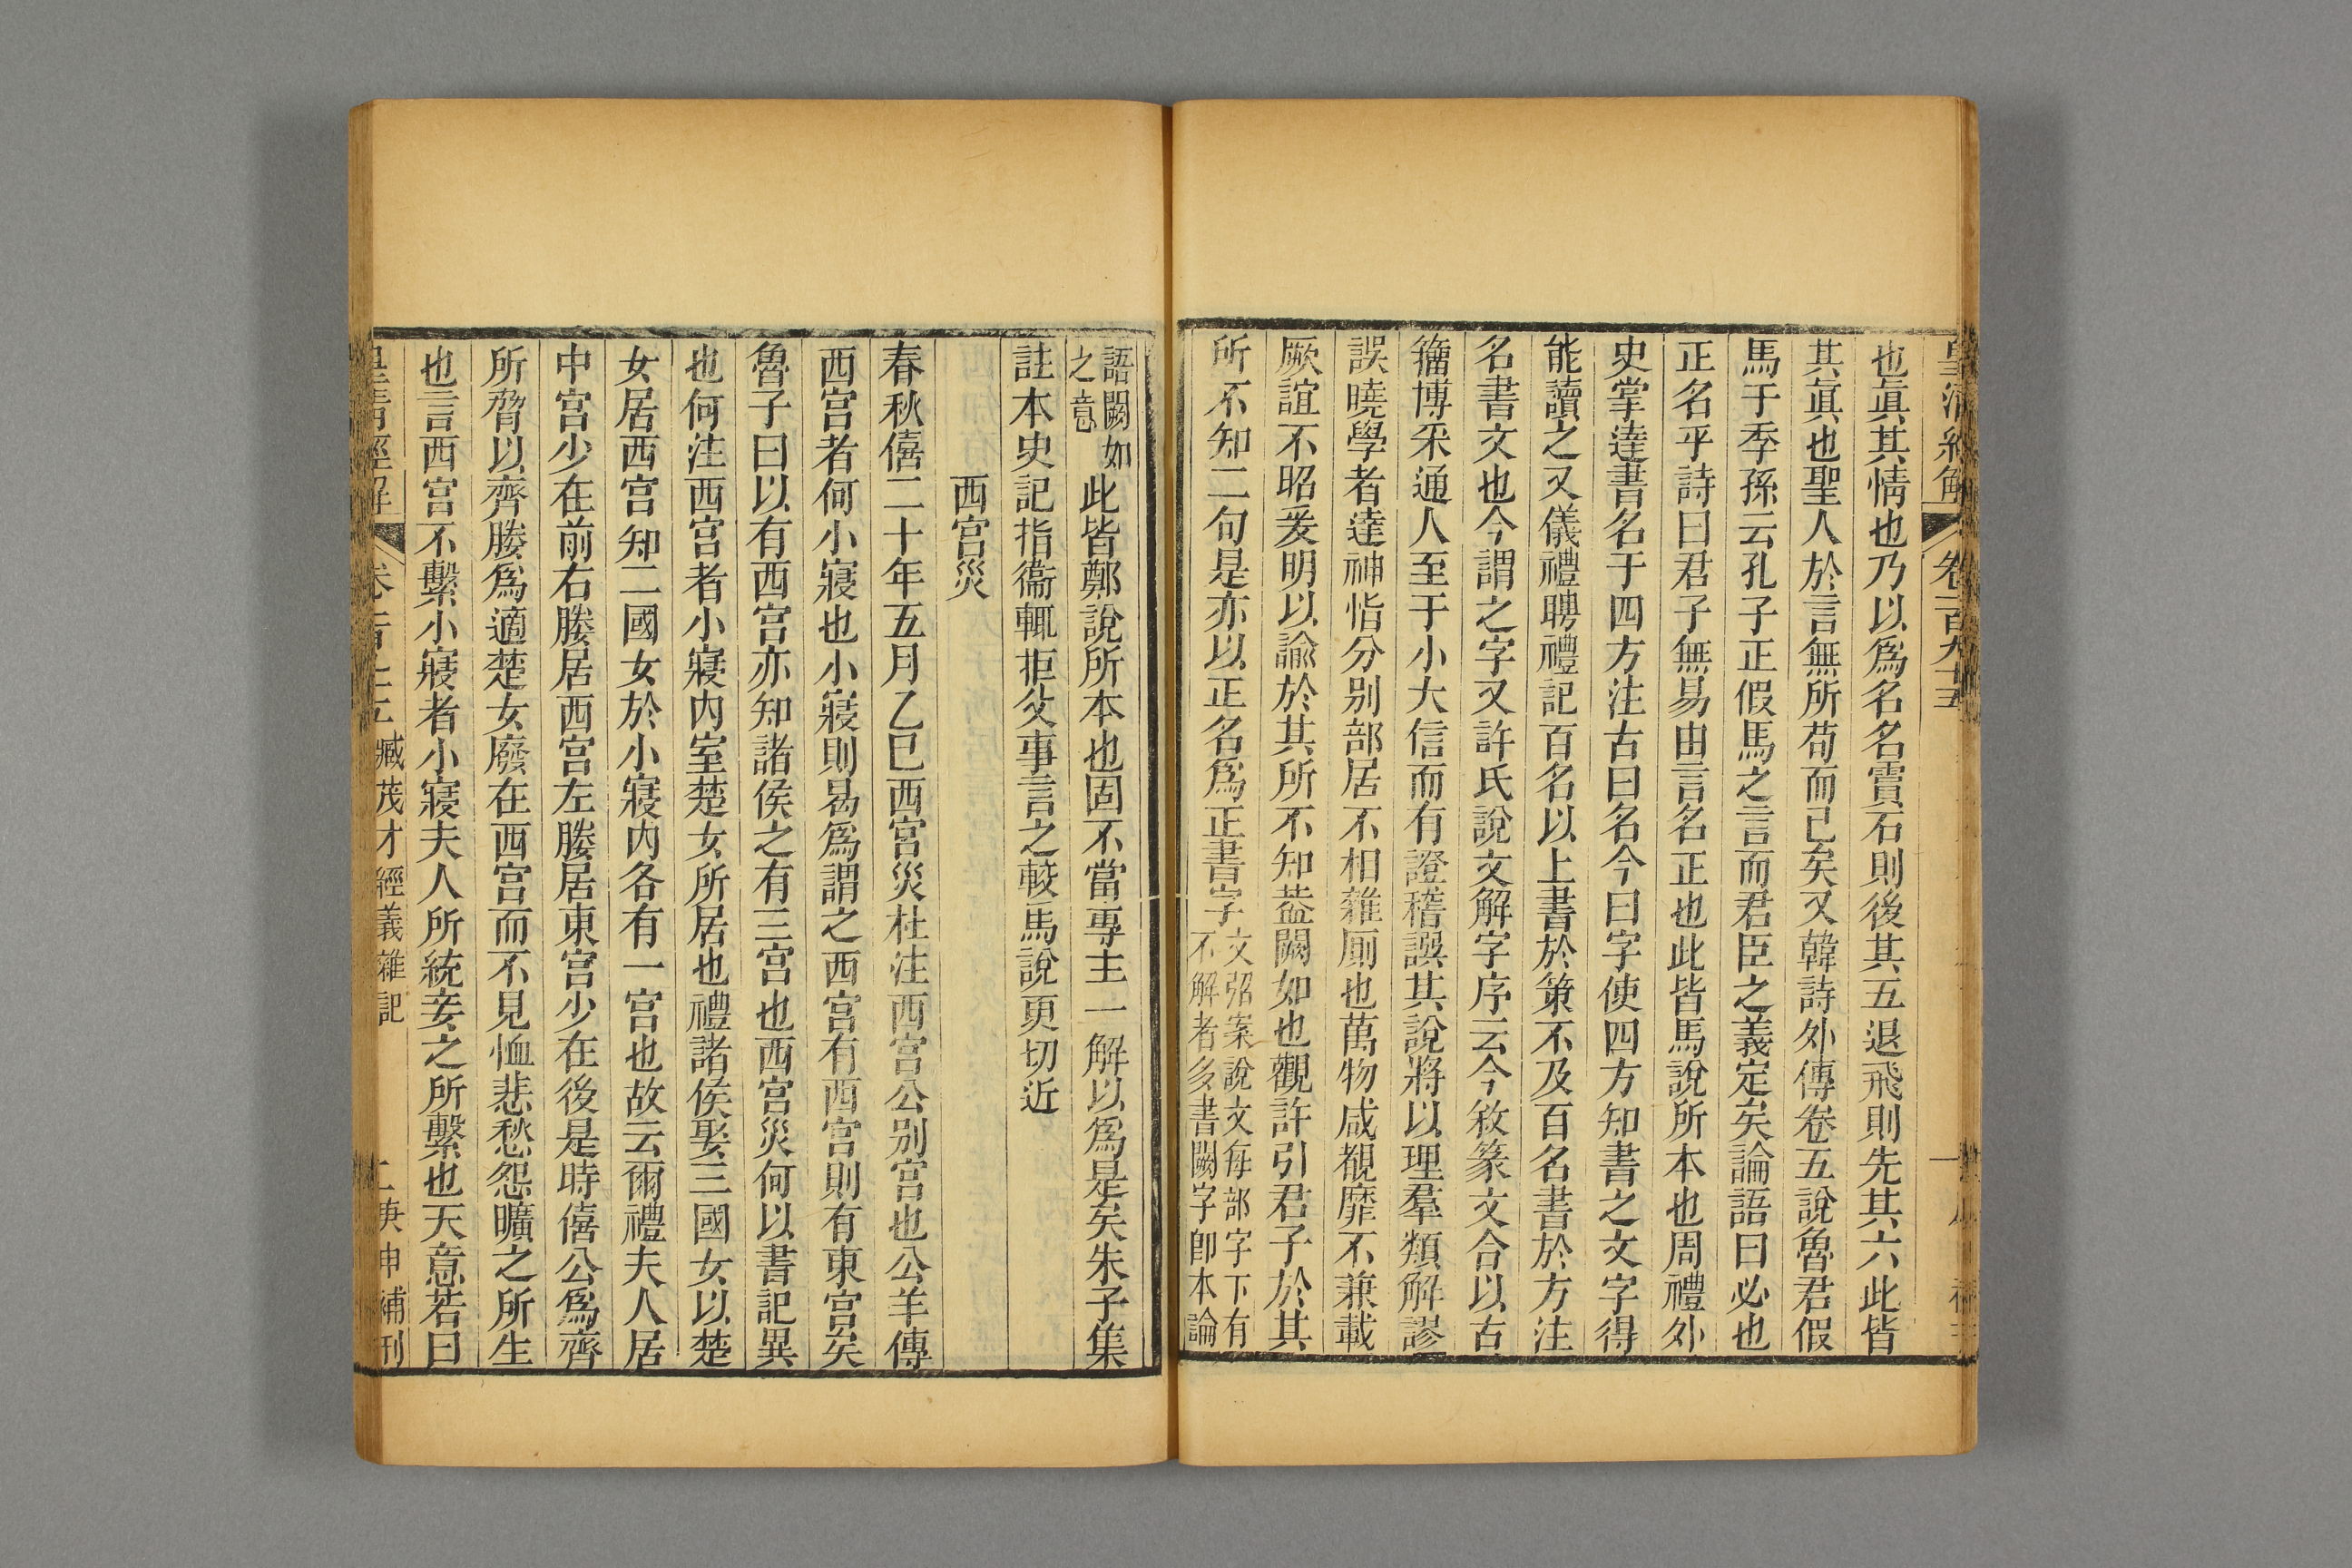 皇清經解 卷一百九十五
也眞其情也乃以爲名名霣石則後其五退飛則先其六此皆
其眞也聖人於言無所苟而已矣又韓詩外傳卷五說魯君假
馬于季孫云孔子正假馬之言而君臣之義定矣論語曰必也
正名乎詩曰君子無易由言名正也此皆馬說所本也周禮外
史掌達書名于四方注古曰名今曰字使四方知書之文字得
能讀之又儀禮聘禮記百名以上書於策不及百名書於方注
名書文也今謂之字又許氏說文解字序云今敘篆文合以古
籀博采通人至于小大信而有證稽譔其說將以理羣類解謬
誤曉學者達神恉分別部居不相雜厠也萬物咸覩靡不兼載
厥誼不昭爰明以諭於其所不知葢闕如也觀許引君子於其
所不知二句是亦以正名爲正書字
文弨案說文每部字下有
不解者多書闕字卽本論
語闕如
之意
此皆鄭說所本也固不當專主一解以爲是矣朱子集
註本史記指衞輒拒父事言之較馬說更切近
西宮災
春秋僖二十年五月乙巳西宮災杜注西宮公別宮也公羊傳
西宮者何小寢也小寢則曷爲謂之西宮有西宮則有東宮矣
魯子曰以有西宮亦知諸侯之有三宮也西宮災何以書記異
也何注西宮者小寢內室楚女所居也禮諸侯娶三國女以楚
女居西宮知二國女於小寢內各有一宮也故云爾禮夫人居
中宮少在前右媵居西宮左媵居東宮少在後是時僖公爲齊
所脅以齊媵爲適楚女廢在西宮而不見恤悲愁怨曠之所生
也言西宮不繫小寢者小寢夫人所統妾之所繫也天意若曰
皇清經解 臧茂才經義雜記 二 庚申補刊